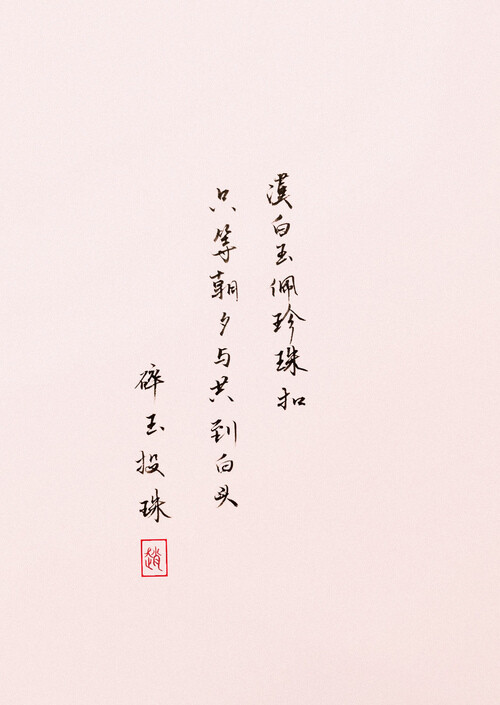 漢白玉佩珍珠扣
只等朝夕与共到白头
碎玉投珠
趙